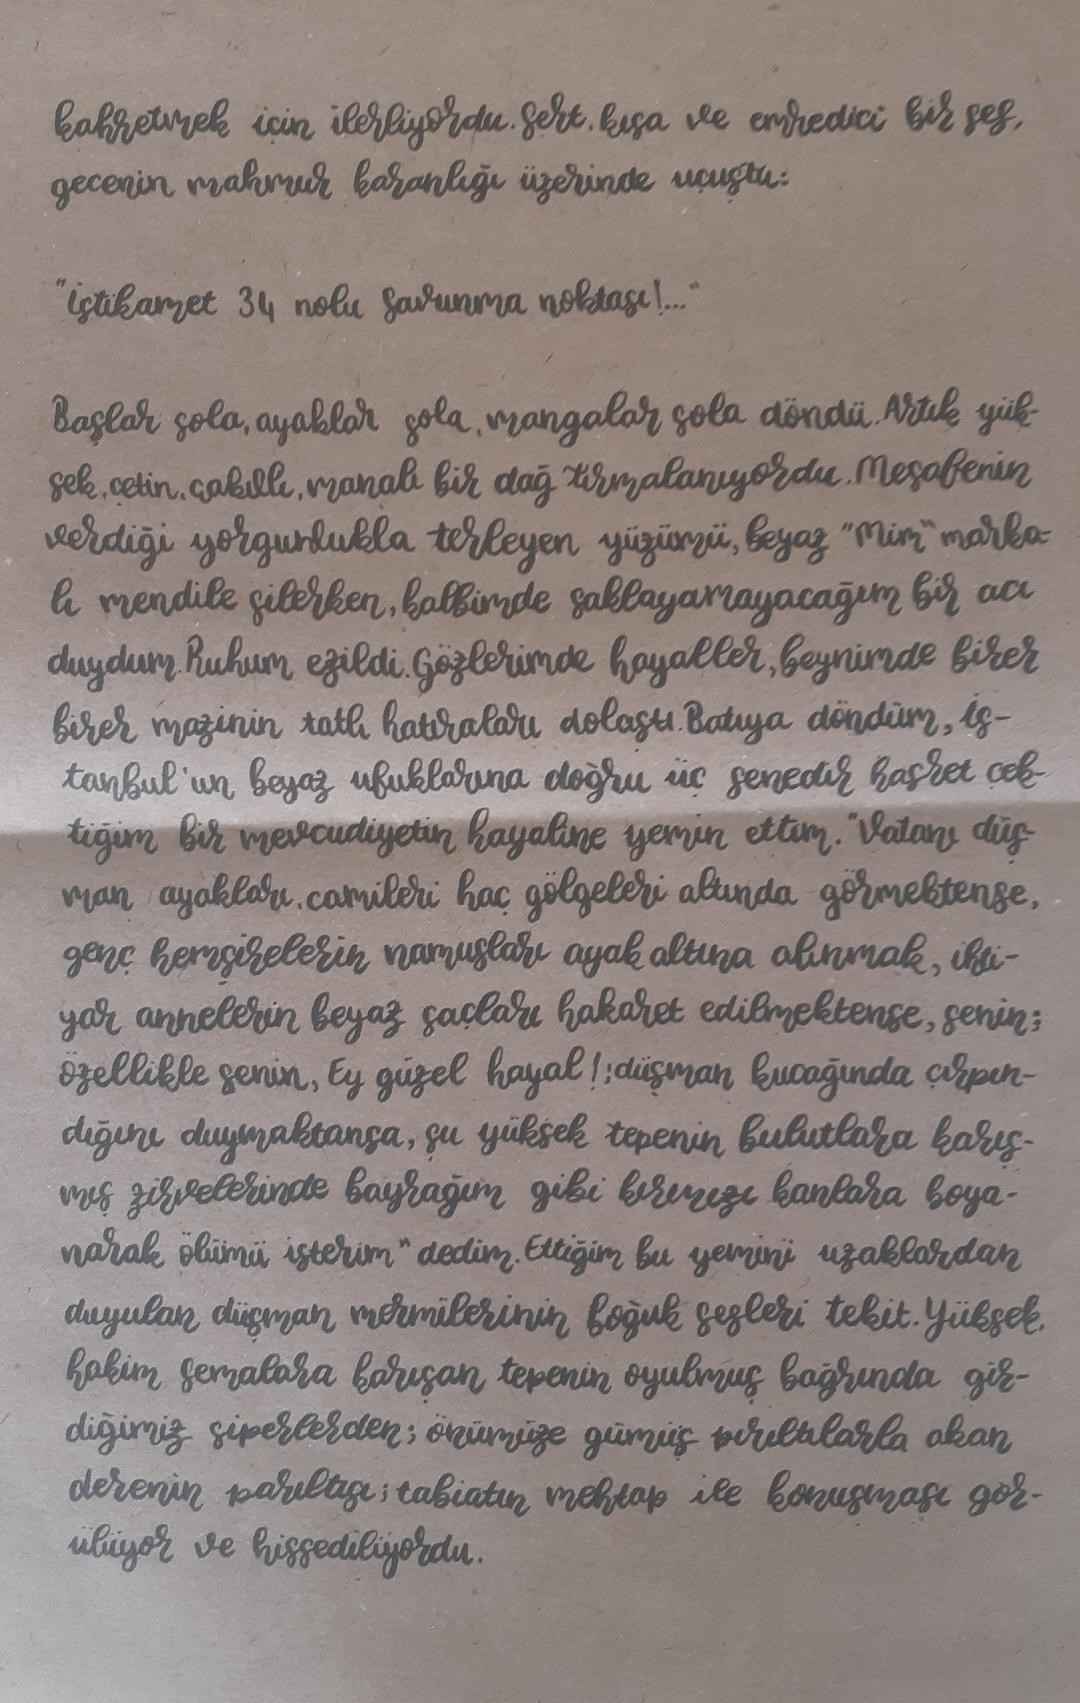 kahretmek için ilerliyordu. Sert, kısa ve emredici bir ses,
gecenin mahmur karanlığı üzerinde uçuştu:
"İstikamet 34 nolu savunma noktası!..."
Başlar sola, ayaklar sola, mangalar sola döndü. Artık yük-
sek, çetin, çakıllı, manalı bir dağ tırmalanıyordu. Mesafenin
verdiği yorgunlukla terleyen yüzümü, beyaz "Mim" marka-
lı mendile silerken, kalbimde saklayamayacağım bir acı
duydum. Ruhum ezildi. Gözlerimde hayaller, beynimde birer
birer mazinin tatlı hatıraları dolaştı. Batıya döndüm, İs-
tanbul'un beyaz ufuklarına doğru üç senedir hasret çek-
tiğim bir mevcudiyetin hayaline yemin ettim. "Vatanı düş-
man ayakları, camileri haç gölgeleri altında görmektense,
genç hemşirelerin namusları ayak altına alınmak, ihti-
yar annelerin beyaz saçları hakaret edilmektense, senin;
özellikle senin, Ey güzel hayal!; düşman kucağında çırpın-
dığını duymaktansa, şu yüksek tepenin bulutlara karış-
mış zirvelerinde bayrağım gibi kırmızı kanlara boya-
narak ölümü isterim" dedim. Ettiğim bu yemini uzaklardan
duyulan düşman mermilerinin boğuk sesleri tekit. Yüksek,
hakim semalara karışan tepenin oyulmuş bağrında gir-
diğimiz siperlerden; önümüze gümüş pırıltılarla akan
derenin parıltısı; tabiatın mehtap ile konuşması gör-
ülüyor ve hissediliyordu.